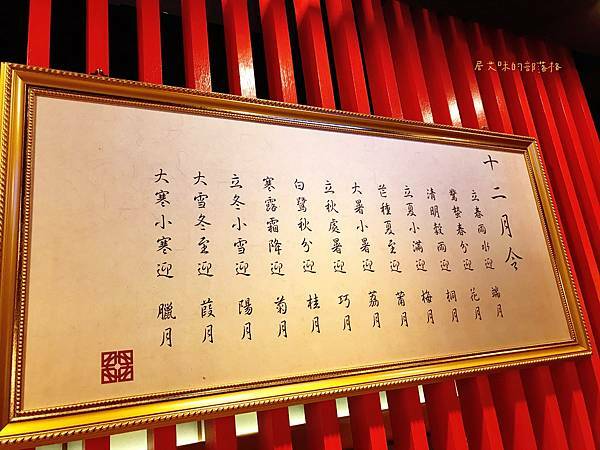 十二月令
立春雨水迎 端月
驚蟄春分迎 花月
清明穀雨迎 桐月
立夏小滿迎 梅月
芒種夏至迎 莆月
大暑小暑迎 荔月
立秋處暑迎 巧月
白鷺秋分迎 桂月
寒露霜降迎 菊月
立冬小雪迎 陽月
大雪冬至迎 葭月
大寒小寒迎 臘月
的部落格